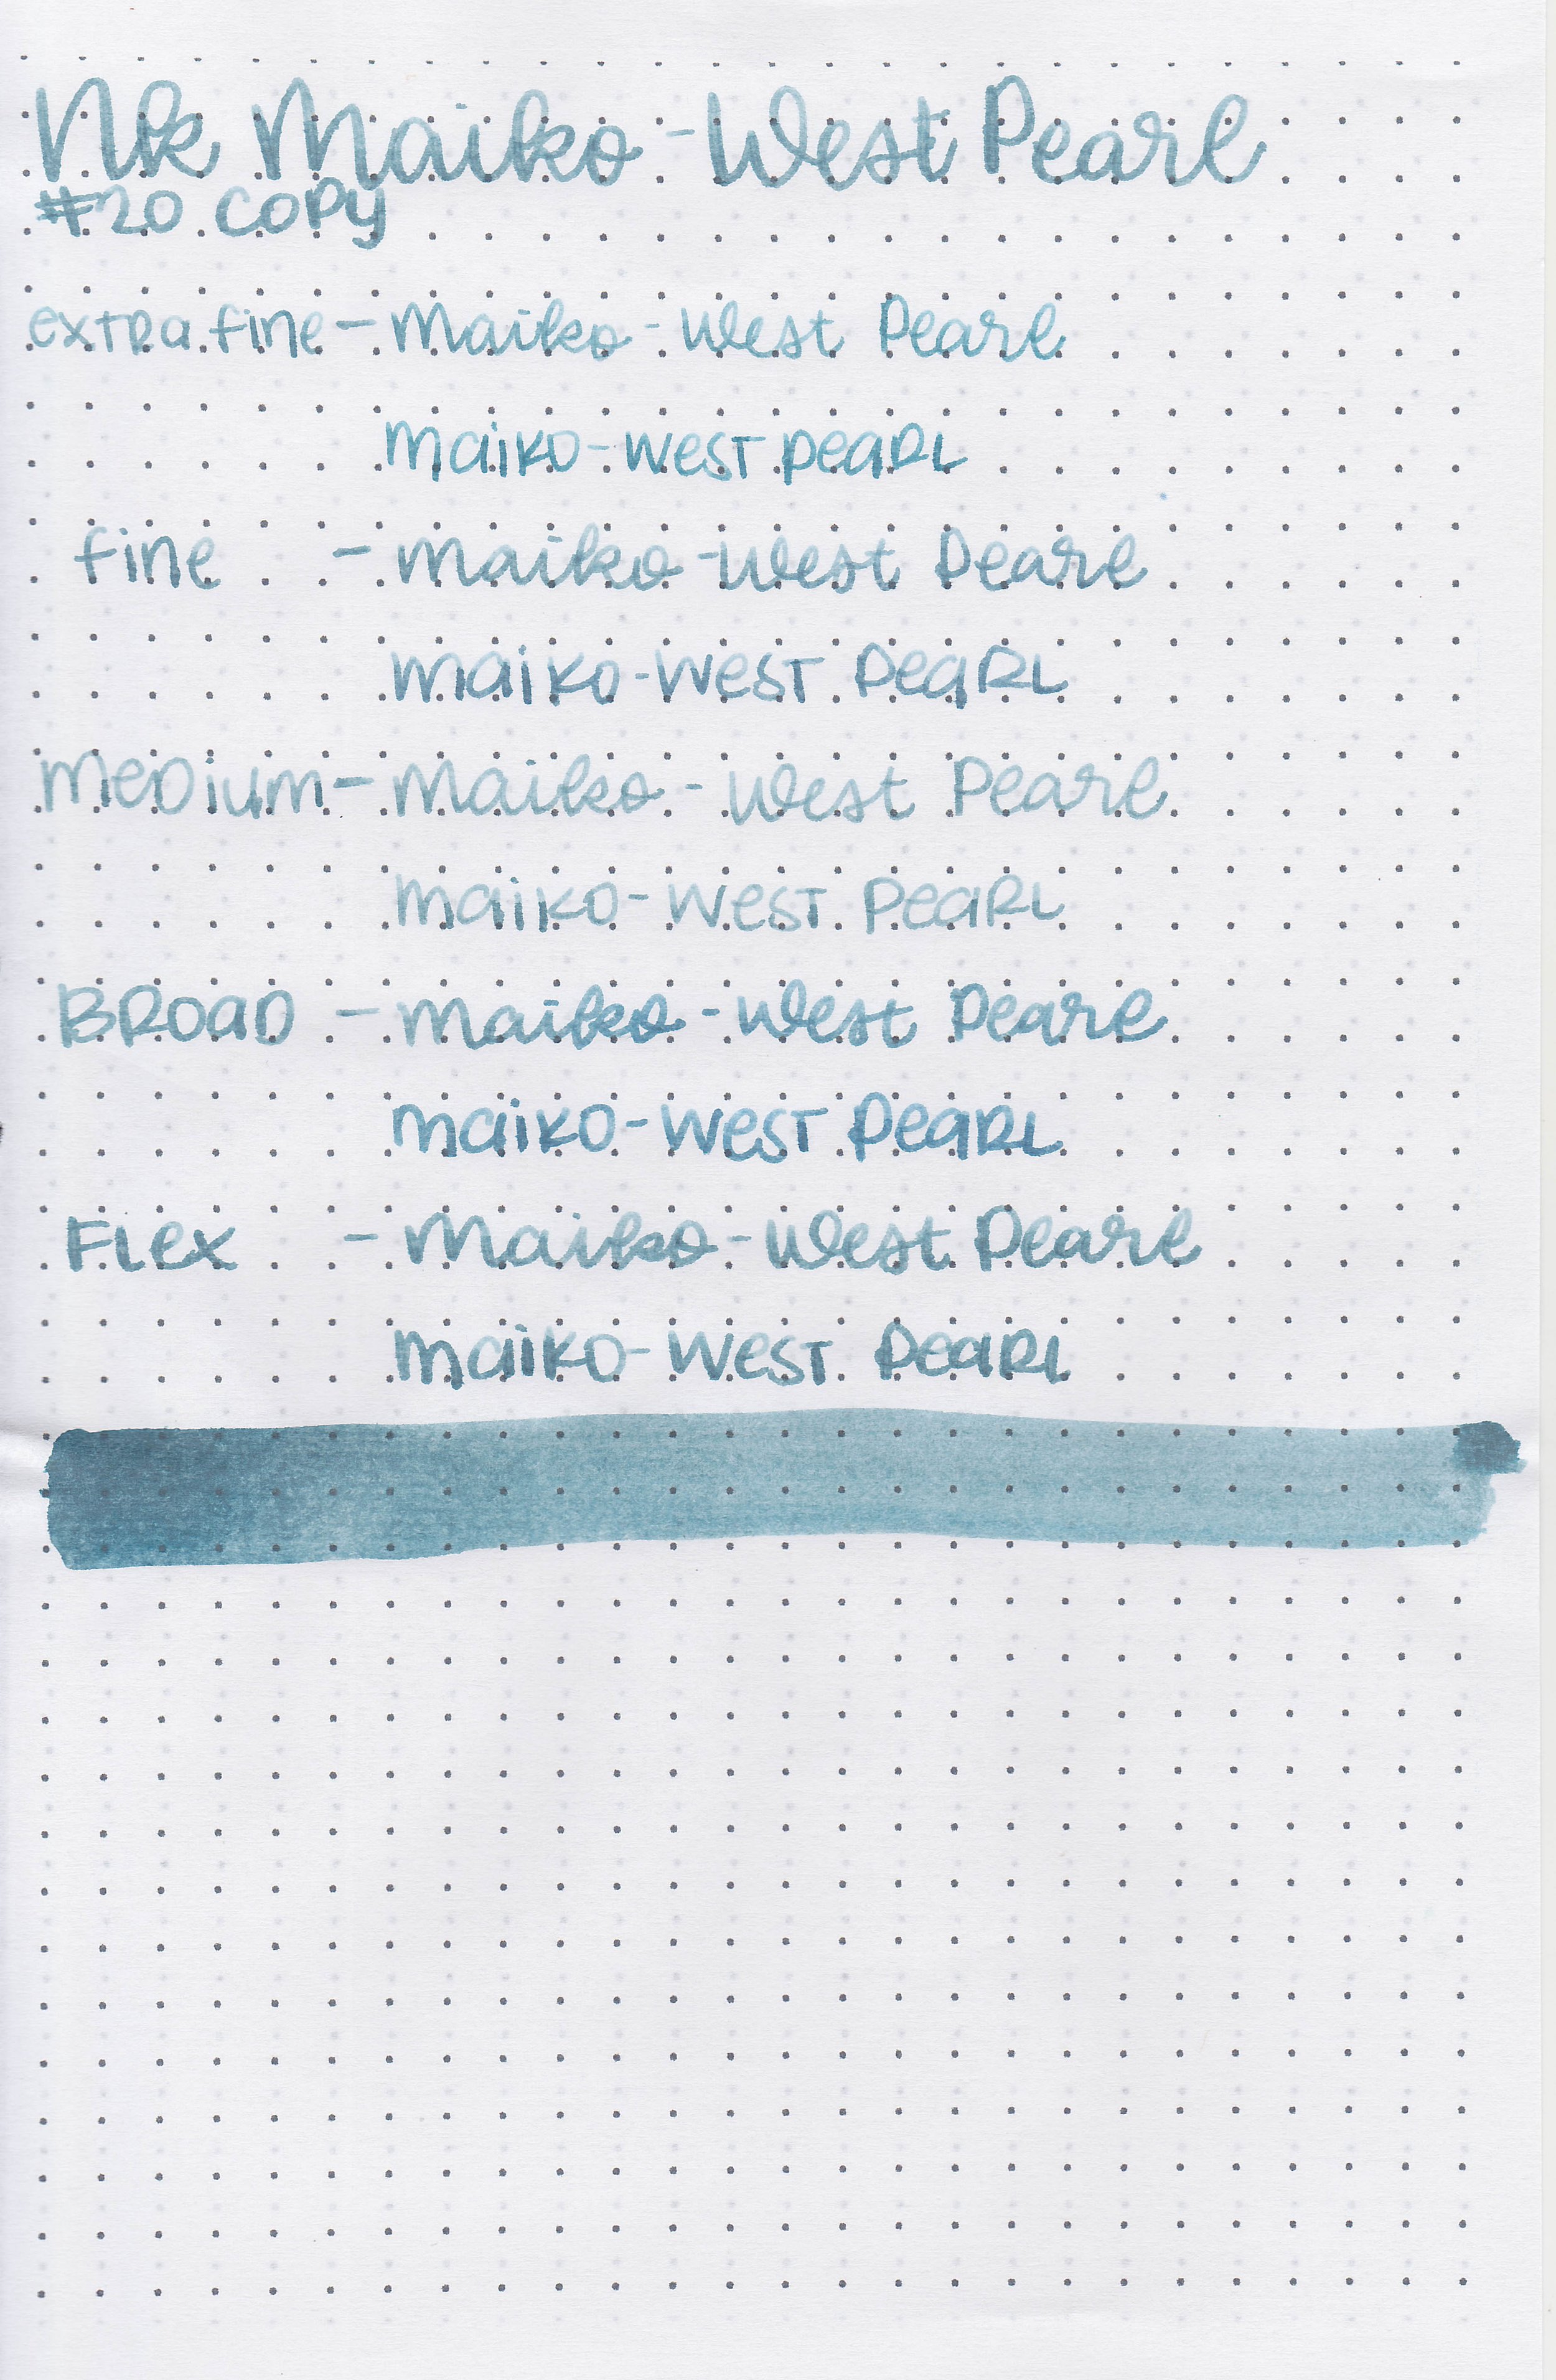 Nk Maiko - West Pearl
#20 COPY
extra fine - Maiko - West Pearl
maiko - west pearl
fine - Maiko - West Pearl
maiko - west pearl
medium - Maiko - West Pearl
maiko - west pearl
Broad - Maiko - West Pearl
maiko - west pearl
Flex - Maiko - West Pearl
maiko - west pearl